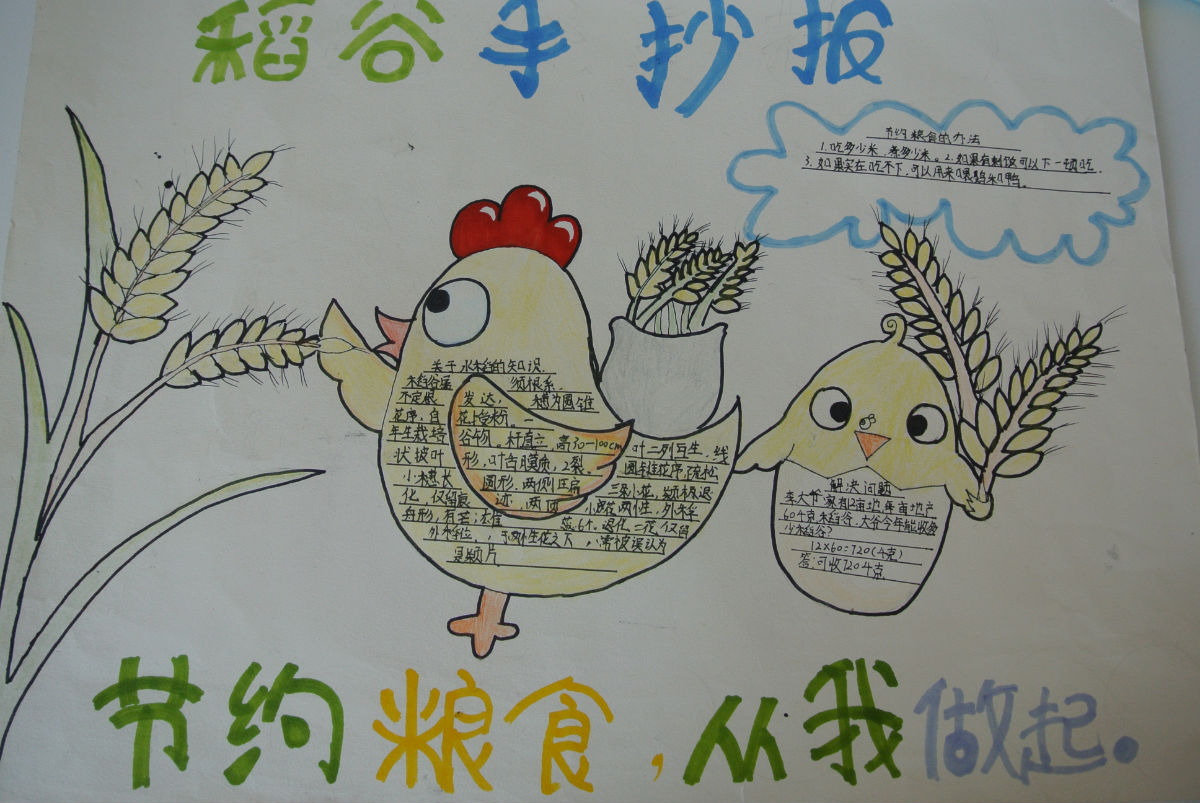 稻谷手抄报
节约粮食的办法
1.吃多少米,煮多少米。2.如果有剩饭可以下一顿吃.
3.如果实在吃不下,可以用来喂鸡和鸭。
关于水稻的知识.
须根系.
不定根 发达, 穗为圆锥
花序,自 花授粉。一
年生栽培 谷物。杆直立,高30—100cm 叶二列互生.线
状披叶 形,叶舌膜质,2裂 圆锥花序疏松
小穗长 圆形,两侧压扁 三朵小花,颖极退
化,仅留痕 迹,
舟形,有芒;雄 蕊6个.退化二花仅留
外稃位, 常被误认为
颖片
解决问题
李大爷家有12亩地,每亩地产
60千克稻谷.大爷今年能收多
少稻谷?
12×60=720(千克)
答:可收720千克
节约粮食,从我做起。